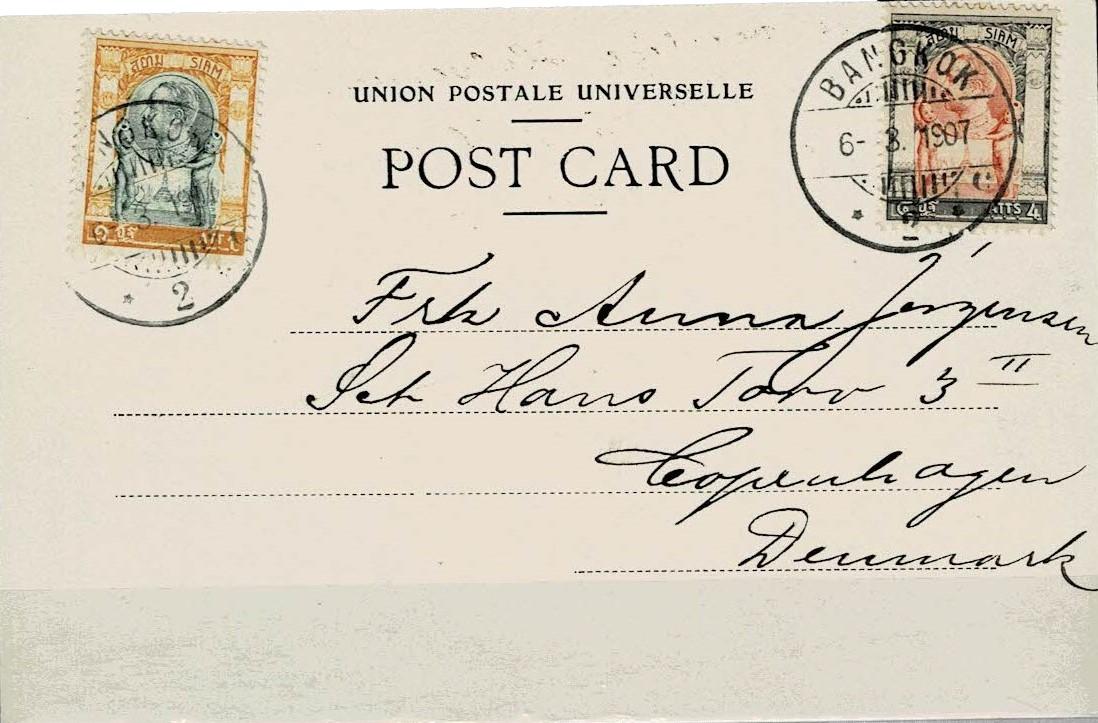 สยาม SIAM
สยาม SIAM
BANGKOK
6- 3. 1907
2
ATTS 4
NGKOK
2
UNION POSTALE UNIVERSELLE
POST CARD
Frk Anna Jörgensen
Sct Hans Torv 3 II
Copenhagen
Denmark